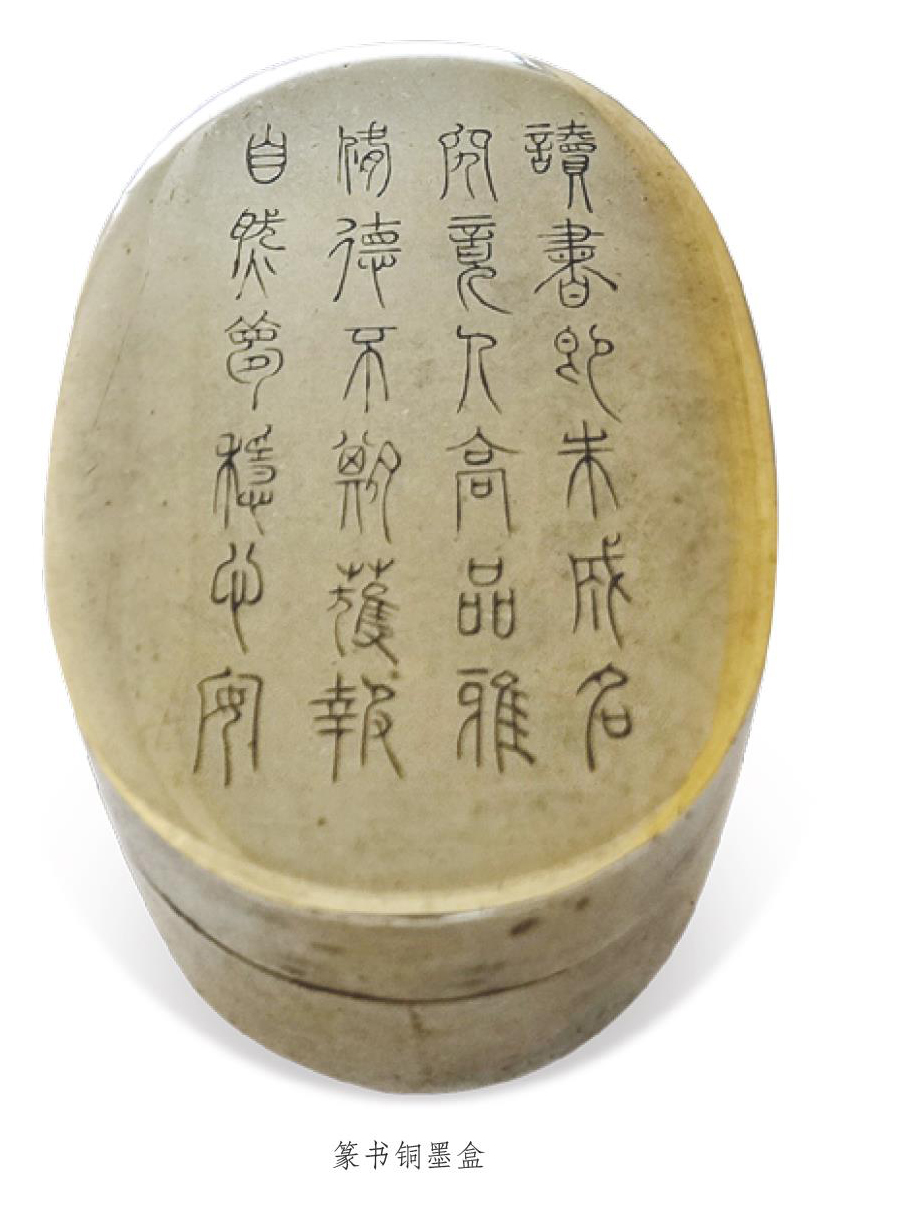 讀書即未成名
究竟人高品雅
脩德不期獲報
自然夢穩心安
篆书铜墨盒